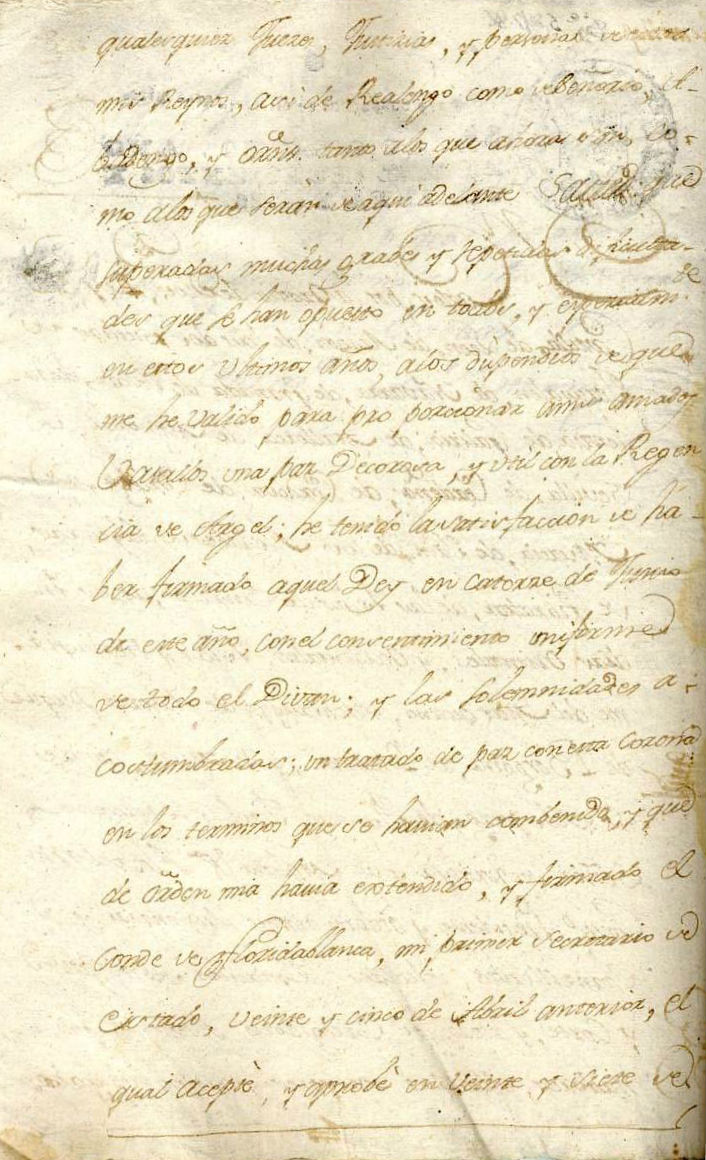 qualesquier Jueces, Justicias, y personas de estos
mis Reynos, asi de Realengo como de Señorio, A-
badengo, y Orns. tanto alos que ahora son, co-
mo alos que serán de aqui adelante Saved que
superadas muchas grabes y repetidas dificulta-
des que se han opuesto en todos, y especialmte.
en estos ultimos años, alos dispendios de que
me he valido para proporcionar amis amados
Vasallos una paz Decorosa, y util con la Regen
cia de Argel; he tenido la satisfaccion de ha-
ber firmado aquel Dey en catorze de Junio
de este año, con el consentimiento uniforme
de todo el Divan; y las solemnidades a-
costumbradas; un tratado de paz con esta Corona
en los terminos que se havian combenido, y que
de Orden mia havia extendido, y firmado el
Conde de Floridablanca, mi primer Secretario de
Estado, veinte y cinco de Abril anterior, el
qual acepté, y aprobé en Veinte y siete de